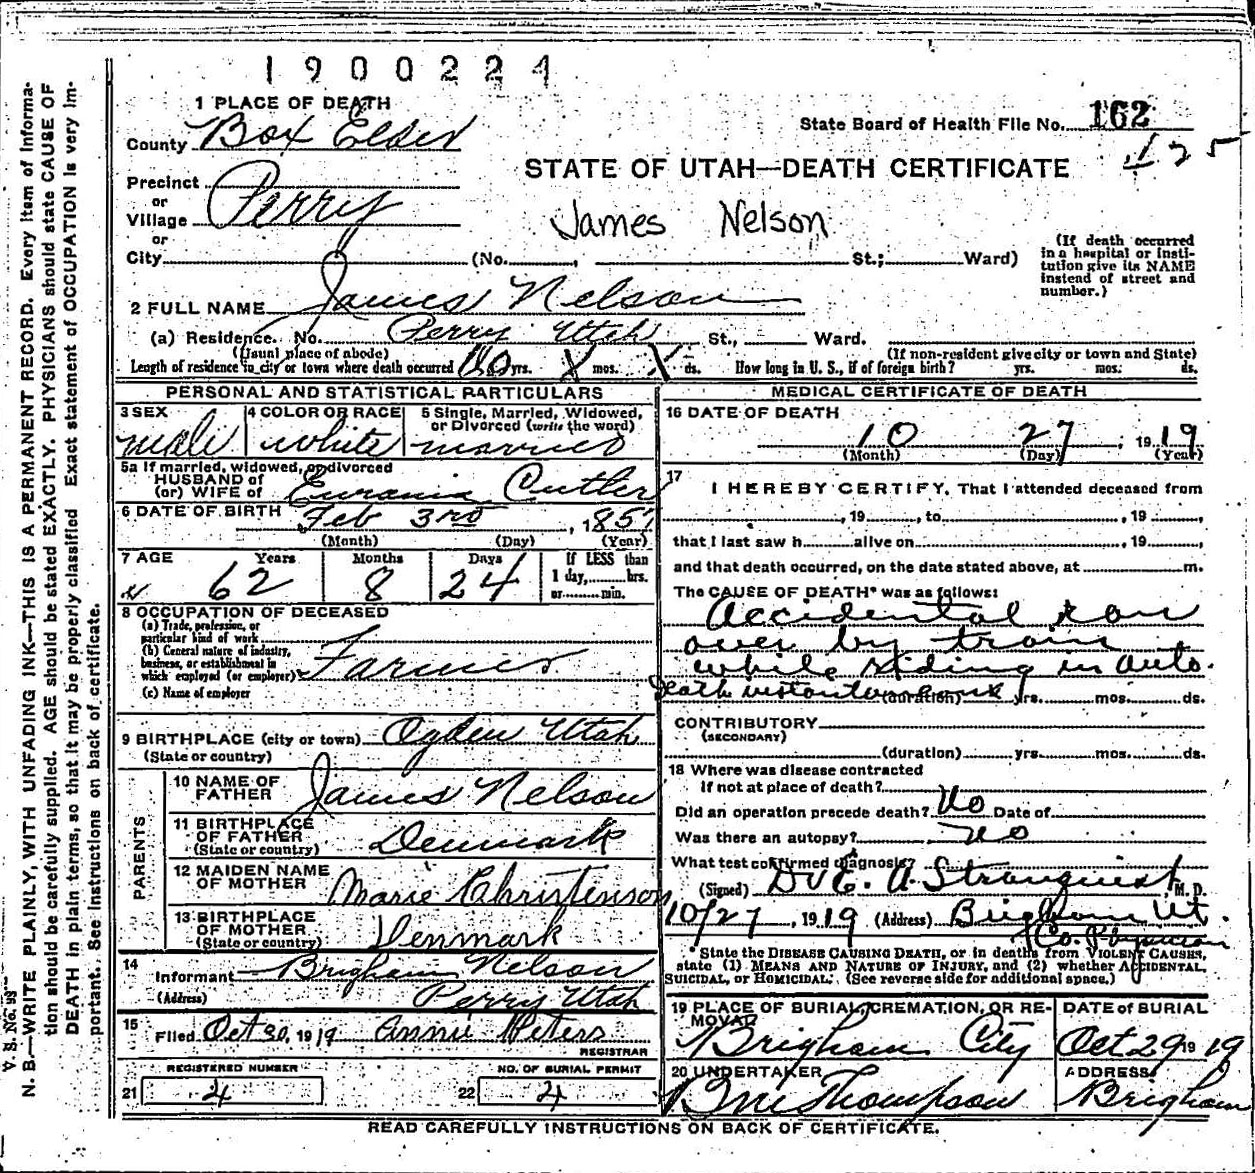 1900224
1 PLACE OF DEATH
County Box Elder
State Board of Health File No. 162
125
STATE OF UTAH—DEATH CERTIFICATE
Precinct
or
Village Perry
or
City (No. , St.; Ward)
James Nelson
(If death occurred
in a hospital or insti-
tution give its NAME
instead of street and
number.)
2 FULL NAME James Nelson
(a) Residence. No. Perry Utah St., Ward.
(Usual place of abode) (If non-resident give city or town and State)
Length of residence in city or town where death occurred yrs. X mos. X ds. How long in U. S., if of foreign birth? yrs. mos. ds.
PERSONAL AND STATISTICAL PARTICULARS
3 SEX male
4 COLOR OR RACE white
5 Single, Married, Widowed,
or Divorced (write the word)
married
5a If married, widowed, or divorced
HUSBAND of
(or) WIFE of Eurania Cutler
6 DATE OF BIRTH Feb 3rd , 1857
(Month) (Day) (Year)
7 AGE Years Months Days If LESS than
62 8 24 1 day, hrs.
or min.
8 OCCUPATION OF DECEASED
(a) Trade, profession, or
particular kind of work
(b) General nature of industry,
business, or establishment in
which employed (or employer) Farmer
(c) Name of employer
9 BIRTHPLACE (city or town) Ogden Utah
(State or country)
PARENTS
10 NAME OF
FATHER James Nelson
11 BIRTHPLACE
OF FATHER
(State or country) Denmark
12 MAIDEN NAME
OF MOTHER Marie Christenson
13 BIRTHPLACE
OF MOTHER
(State or country) Denmark
14
Informant Brigham Nelson
(Address) Perry Utah
15
Filed Oct 30, 1919 Annie Peters
REGISTRAR
REGISTERED NUMBER
21 4
NO. OF BURIAL PERMIT
22 4
MEDICAL CERTIFICATE OF DEATH
16 DATE OF DEATH
10 27 , 1919
(Month) (Day) (Year)
17
I HEREBY CERTIFY, That I attended deceased from
, 19 , to , 19 ,
that I last saw h alive on , 19 ,
and that death occurred, on the date stated above, at m.
The CAUSE OF DEATH* was as follows:
Accidental ran
over by train
while riding in auto.
Death (duration) yrs. mos. ds.
CONTRIBUTORY
(SECONDARY)
(duration) yrs. mos. ds.
18 Where was disease contracted
If not at place of death?
Did an operation precede death? No Date of
Was there an autopsy? no
What test confirmed diagnosis?
(Signed) Dr E. A. Stranquist M. D.
10/27 , 1919 (Address) Brigham Ut.
Co. Physician
*State the DISEASE CAUSING DEATH, or in deaths from VIOLENT CAUSES,
state (1) MEANS AND NATURE OF INJURY, and (2) whether ACCIDENTAL,
SUICIDAL, or HOMICIDAL. (See reverse side for additional space.)
19 PLACE OF BURIAL, CREMATION, OR RE-
MOVAL
Brigham City
DATE of BURIAL
Oct 29 1919
20 UNDERTAKER
Thompson
ADDRESS
Brigham
READ CAREFULLY INSTRUCTIONS ON BACK OF CERTIFICATE.
V. S. No.
N. B.—WRITE PLAINLY, WITH UNFADING INK—THIS IS A PERMANENT RECORD. Every item of informa-
tion should be carefully supplied. AGE should be stated EXACTLY. PHYSICIANS should state CAUSE OF
DEATH in plain terms, so that it may be properly classified. Exact statement of OCCUPATION is very im-
portant. See instructions on back of certificate.